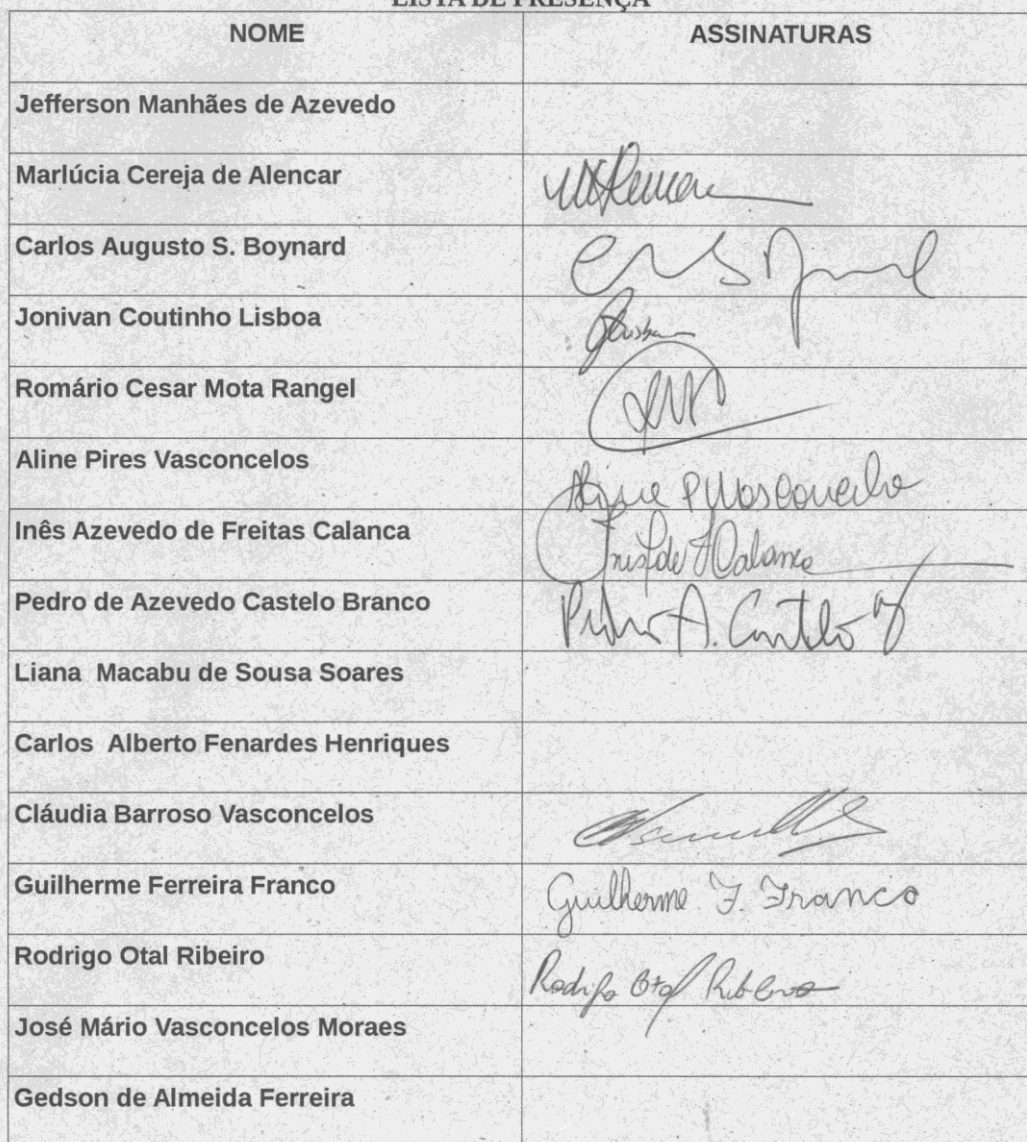 LISTA DE PRESENÇA
NOME ASSINATURAS
Jefferson Manhães de Azevedo
Marlúcia Cereja de Alencar
Carlos Augusto S. Boynard
Jonivan Coutinho Lisboa
Romário Cesar Mota Rangel
Aline Pires Vasconcelos Aline P Vasconcelos
Inês Azevedo de Freitas Calanca
Pedro de Azevedo Castelo Branco Pedro A. Castelo
Liana Macabu de Sousa Soares
Carlos Alberto Fenardes Henriques
Cláudia Barroso Vasconcelos
Guilherme Ferreira Franco Guilherme F. Franco
Rodrigo Otal Ribeiro Rodrigo Otal Ribeiro
José Mário Vasconcelos Moraes
Gedson de Almeida Ferreira